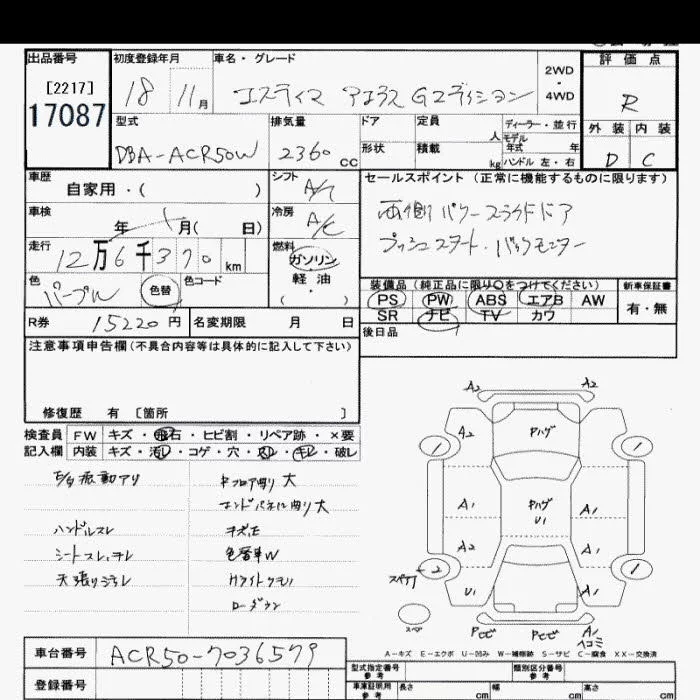 出品番号
[2217]
17087
初度登録年月
18 11月
車名・グレード
エスティマ アエラス Gエディション
2WD
・
4WD
評価点
R
外装 内装
D C
型式
DBA-ACR50W
排気量
2360 cc
ドア
形状
定員
人
積載
kg
ディーラー・並行
モデル
年式 年
ハンドル 左・右
車歴
自家用・( )
シフト
A/T
セールスポイント (正常に機能するものに限ります)
両側パワースライドドア
プッシュスタート・バックモニター
車検
年 月( 日)
冷房
A/C
走行
12万6千370 km
燃料
ガソリン
軽油
( ・ )
色
パープル
色替
色コード
装備品 (純正品に限り〇をつけてください)
PS PW ABS エアB AW
SR ナビ TV カワ
新車保証書
有・無
R券 15220 円
名変期限 月 日
後日品
注意事項申告欄(不具合内容等は具体的に記入して下さい)
修復歴 有 [箇所 ]
検査員
記入欄
FW キズ・飛石・ヒビ割・リペア跡・×要
内装 キズ・汚レ・コゲ・穴・スレ・キレ・破レ
E/g振動アリ
ハンドルスレ
シートスレ・キレ
天張り汚レ
Fフロア曲り大
エンドパネル曲り大
キズ正
色替車W
ホワイトクモリ
ローダウン
A2 A2
A2
Pハゲ
1 1
A1
Pハゲ
U1
A1
A2 A1
2 1
スペア
U1 A1
スペア
Pヒビ Pヒビ A1
ヘコミ
A－キズ E－エクボ U－凹み W－補修跡 S－サビ C－腐食 XX－交換済
車台番号
ACR50-7036579
登録番号
型式指定番号
参考
類別区分番号
参考
車庫証明用
参考
長さ cm
幅 cm
高さ cm